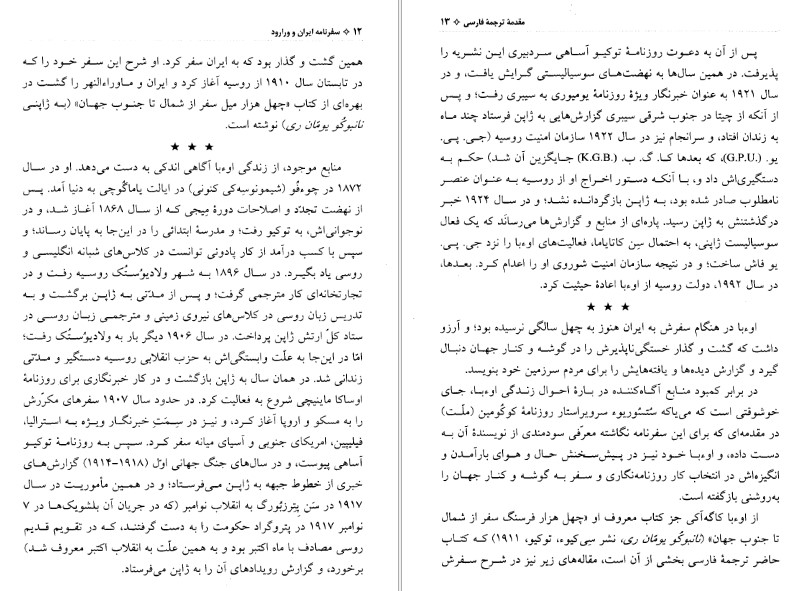 ۱۲ ❖ سفرنامه ایران و ورارود
همین گشت و گذار بود که به ایران سفر کرد. او شرح این سفر خود را که
در تابستان سال ۱۹۱۰ از روسیه آغاز کرد و ایران و ماوراءالنهر را گشت در
بهره‌ای از کتاب «چهل هزار میل سفر از شمال تا جنوب جهان» (به ژاپنی
نانبوکُو یومّان ری) نوشته است.
★ ★ ★
منابع موجود، از زندگی اوءبا آگاهی اندکی به دست می‌دهد. او در سال
۱۸۷۲ در چوءفُو (شیمونوسِه‌کی کنونی) در ایالت یاماگوچی به دنیا آمد. پس
از نهضت تجدّد و اصلاحات دورهٔ مِیجی که از سال ۱۸۶۸ آغاز شد، و در
نوجوانی‌اش، به توکیو رفت؛ و مدرسهٔ ابتدائی را در این‌جا به پایان رساند؛ و
سپس با کسب درآمد از کار پادوئی توانست در کلاس‌های شبانه انگلیسی و
روسی یاد بگیرد. در سال ۱۸۹۶ به شهر ولادیوُستُک روسیه رفت و در
تجارتخانه‌ای کار مترجمی گرفت؛ و پس از مدّتی به ژاپن برگشت و به
تدریس زبان روسی در کلاس‌های نیروی زمینی و مترجمی زبان روسی در
ستاد کلّ ارتش ژاپن پرداخت. در سال ۱۹۰۶ دیگر بار به ولادیوُستُک رفت؛
امّا در این‌جا به علّت وابستگی‌اش به حزب انقلابی روسیه دستگیر و مدّتی
زندانی شد. در همان سال به ژاپن بازگشت و در کار خبرنگاری برای روزنامهٔ
اوساکا ماینیچی شروع به فعالیت کرد. در حدود سال ۱۹۰۷ سفرهای مکرّرش
را به مسکو و اروپا آغاز کرد، و نیز در سِمَتِ خبرنگار ویژه به استرالیا،
فیلیپین، امریکای جنوبی و آسیای میانه سفر کرد. سپس به روزنامهٔ توکیو
آساهی پیوست، و در سال‌های جنگ جهانی اوّل (۱۹۱۸-۱۹۱۴) گزارش‌های
خبری از خطوط جبهه به ژاپن می‌فرستاد؛ و در همین مأموریت در سال
۱۹۱۷ در سَن پِترزبُورگ به انقلاب نوامبر (که در جریان آن بلشویک‌ها در ۷
نوامبر ۱۹۱۷ در پتروگراد حکومت را به دست گرفتند، که در تقویم قدیم
روسی مصادف با ماه اکتبر بود و به همین علّت به انقلاب اکتبر معروف شد)
برخورد، و گزارش رویدادهای آن را به ژاپن می‌فرستاد.
مقدمهٔ ترجمهٔ فارسی ❖ ۱۳
پس از آن به دعوت روزنامهٔ توکیو آساهی سردبیری این نشریه را
پذیرفت. در همین سال‌ها به نهضت‌های سوسیالیستی گرایش یافت، و در
سال ۱۹۲۱ به عنوان خبرنگار ویژهٔ روزنامهٔ یومیوری به سیبری رفت؛ و پس
از آنکه از چیتا در جنوب شرقی سیبری گزارش‌هایی به ژاپن فرستاد چند ماه
به زندان افتاد، و سرانجام نیز در سال ۱۹۲۲ سازمان امنیت روسیه (جی. پی.
یو. (G.P.U.)، که بعدها کا. گ. ب. (K.G.B.) جایگزین آن شد) حکم به
دستگیری‌اش داد و، با آنکه دستور اخراج او از روسیه به عنوان عنصر
نامطلوب صادر شده بود، به ژاپن بازگردانده نشد؛ و در سال ۱۹۲۴ خبر
درگذشتنش به ژاپن رسید. پاره‌ای از منابع و گزارش‌ها می‌رسانَد که یک فعال
سوسیالیست ژاپنی، به احتمال سِن کاتایاما، فعالیت‌های اوءبا را نزد جی. پی.
یو فاش ساخت؛ و در نتیجه سازمان امنیت شوروی او را اعدام کرد. بعدها،
در سال ۱۹۹۲، دولت روسیه از اوءبا اعادهٔ حیثیت کرد.
★ ★ ★
اوءبا در هنگام سفرش به ایران هنوز به چهل سالگی نرسیده بود؛ و آرزو
داشت که گشت و گذار خستگی‌ناپذیرش را در گوشه و کنار جهان دنبال
گیرد و گزارش دیده‌ها و یافته‌هایش را برای مردم سرزمین خود بنویسد.
در برابر کمبود منابع آگاه‌کننده در بارهٔ احوال زندگی اوءبا، جای
خوشوقتی است که می‌یاکه سِتسوُریوء سرویراستار روزنامهٔ کوکُومین (ملّت)
در مقدمه‌ای که برای این سفرنامه نگاشته معرّفی سودمندی از نویسندهٔ آن به
دست داده، و اوءبا خود نیز در پیش‌سخنش حال و هوای بارآمدن و
انگیزه‌اش در انتخاب کار روزنامه‌نگاری و سفر به گوشه و کنار جهان را
به‌روشنی بازگفته است.
از اوءبا کاگه‌آکی جز کتاب معروف او «چهل هزار فرسنگ سفر از شمال
تا جنوب جهان» (نانبوکُو یومّان ری، نشر سِی‌کیوء، توکیو، ۱۹۱۱) که کتاب
حاضر ترجمهٔ فارسی بخشی از آن است، مقاله‌های زیر نیز در شرح سفرش